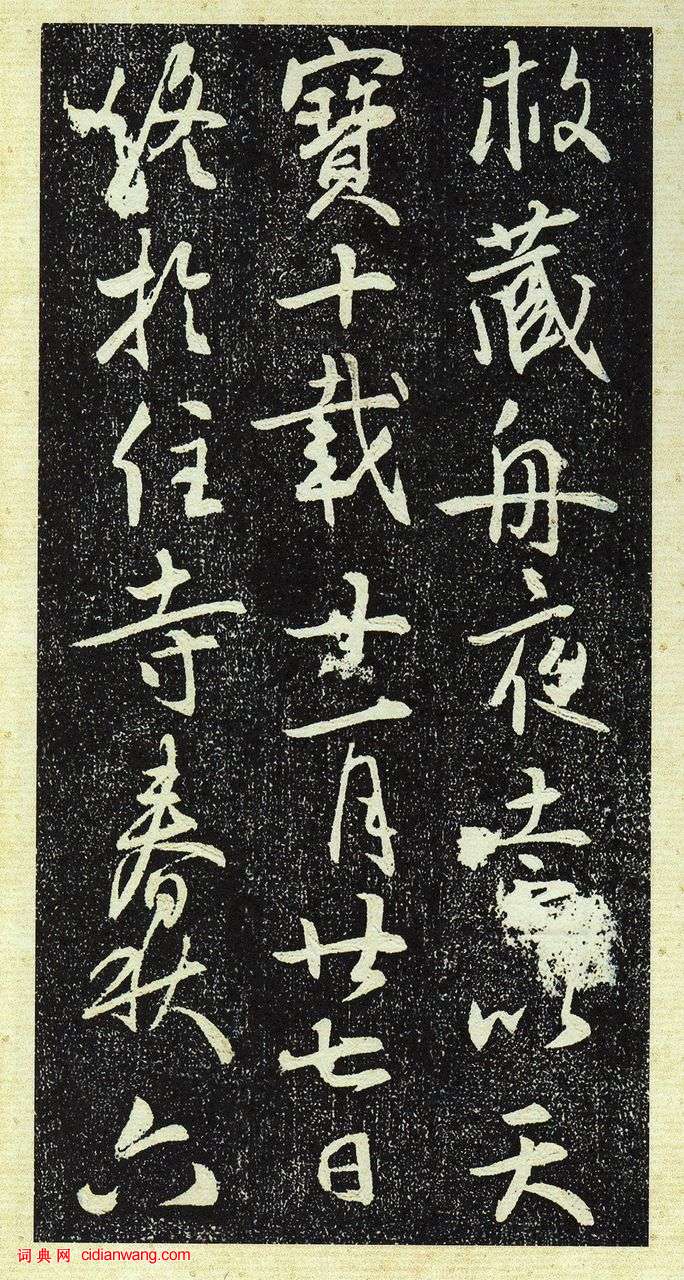 藏舟夜以天
寶十載廿一月廿七日
終於住寺春秋六
词典网 cidianwang.com